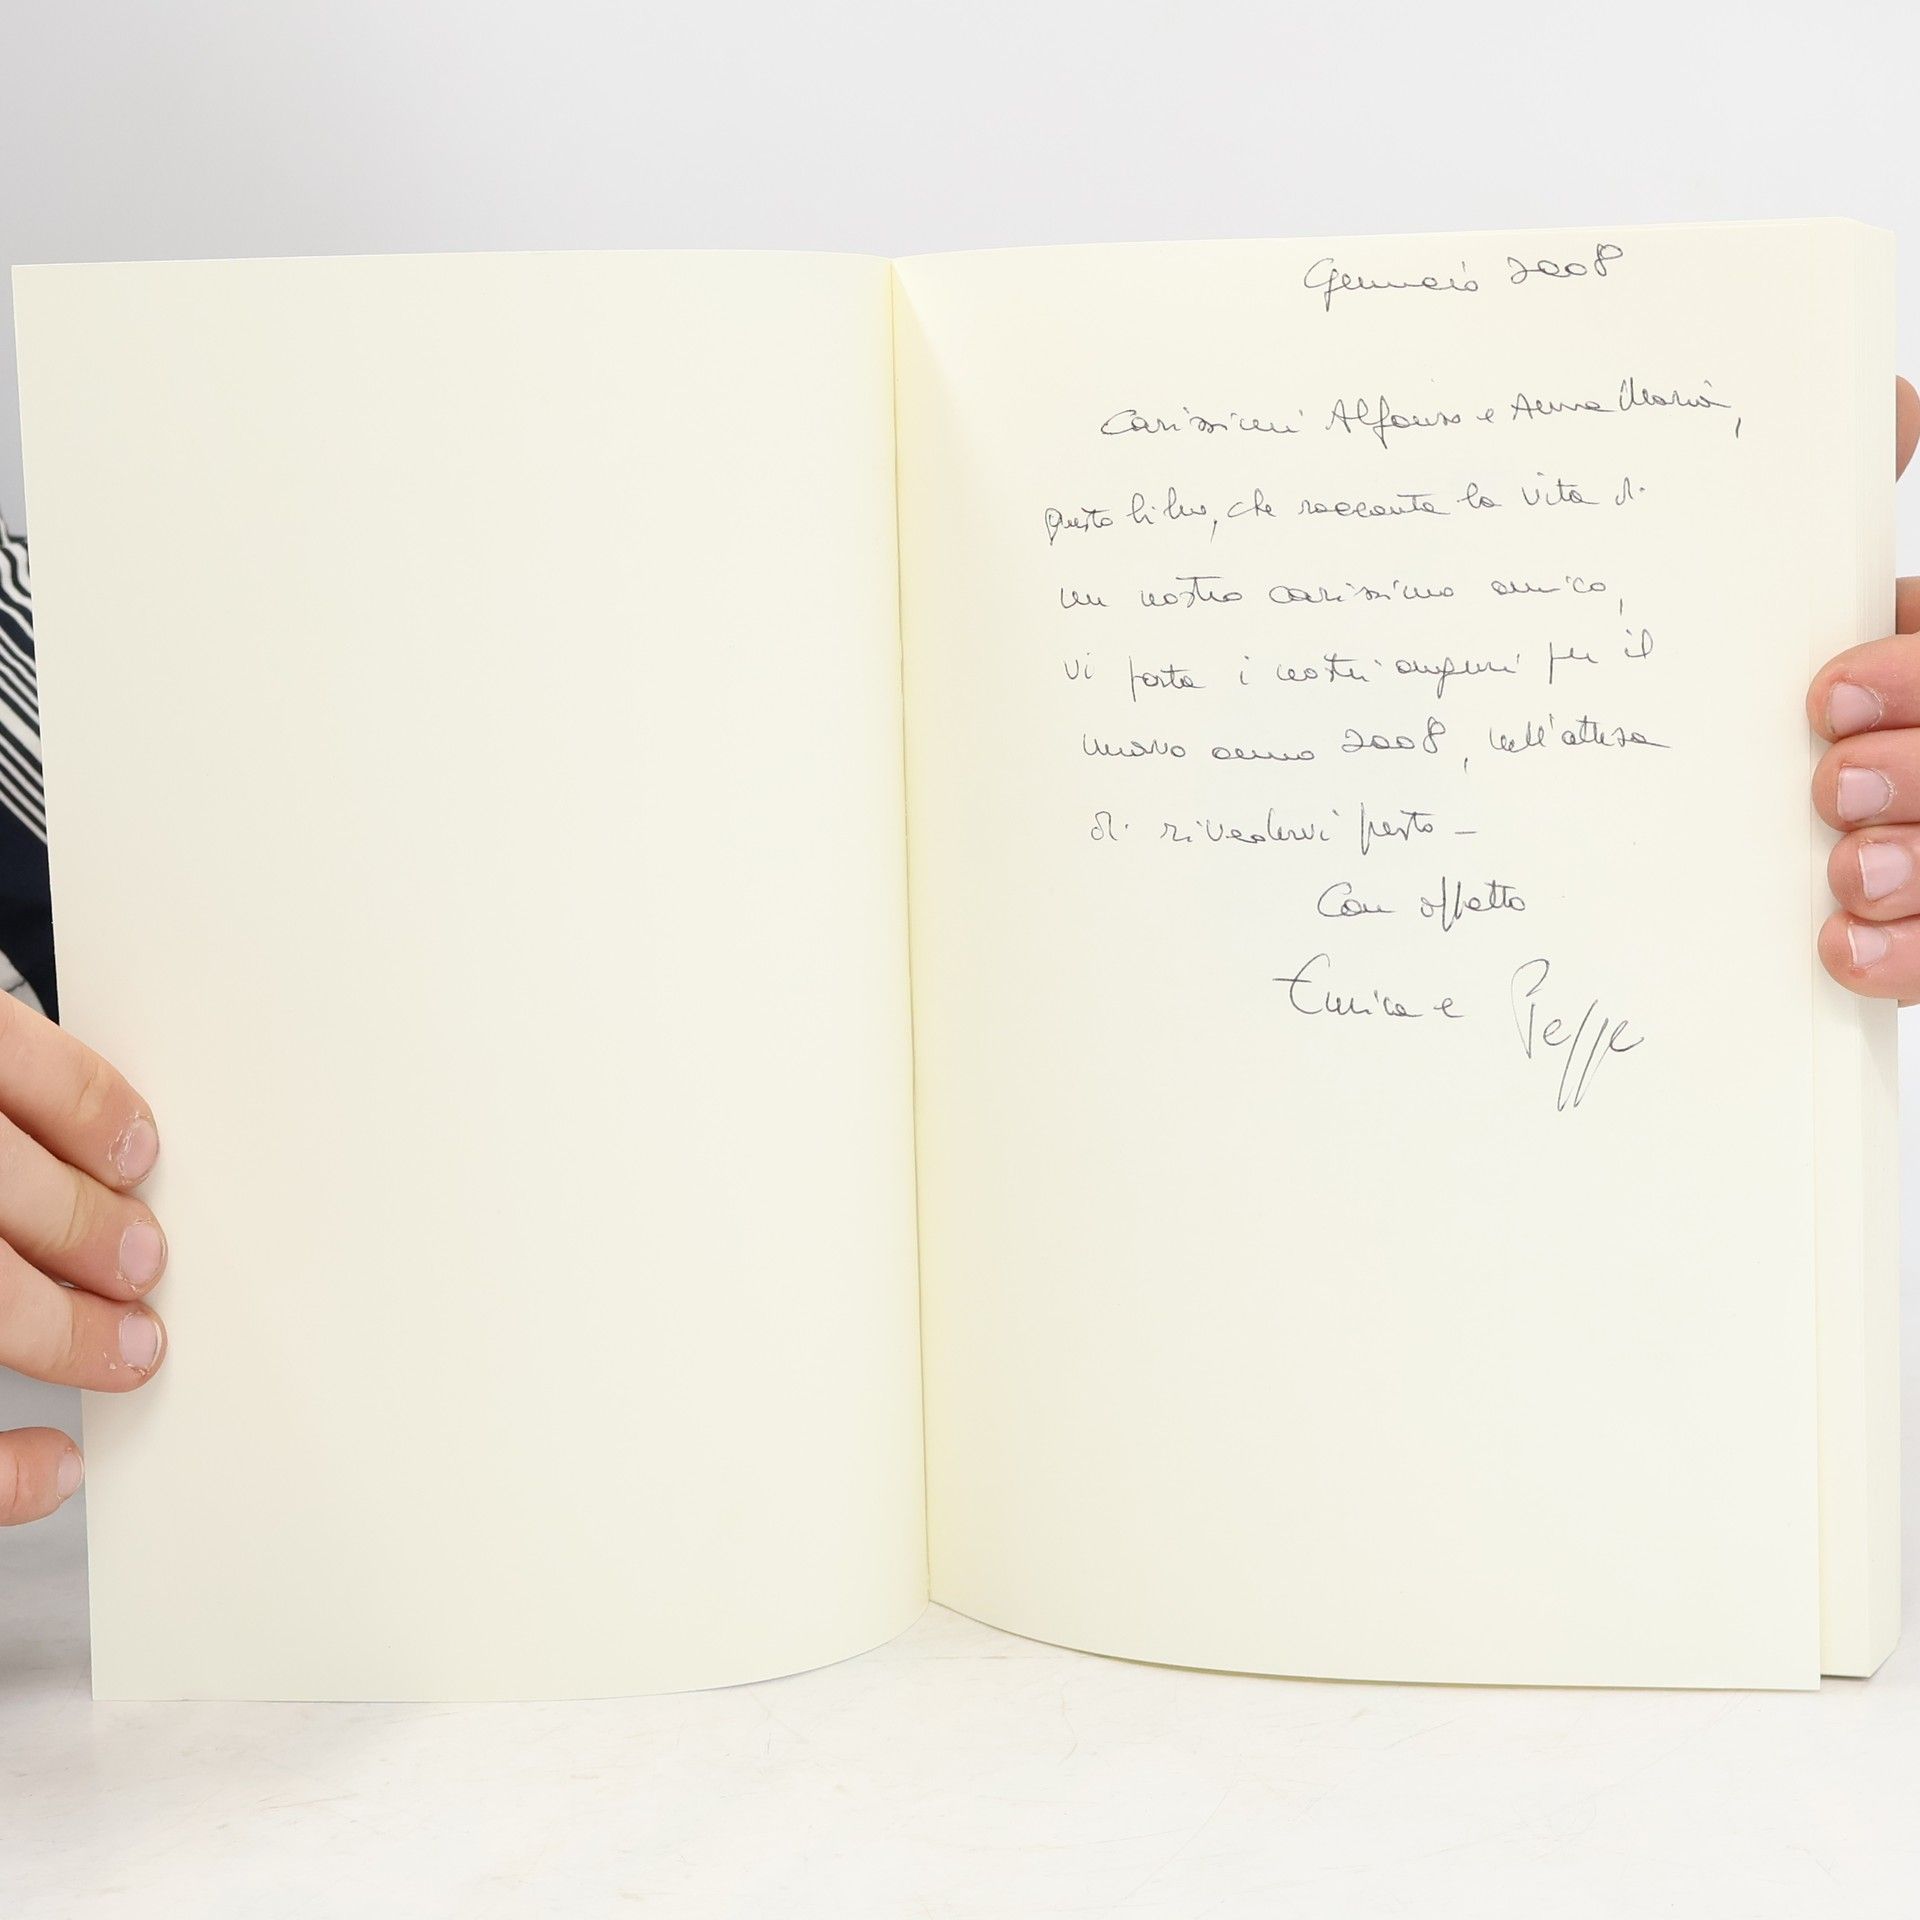 Gennaio 2008
Carissimi Alfonso e Anna Maria,
questo libro, che racconta la vita di
un nostro carissimo amico,
vi porta i nostri auguri per il
nuovo anno 2008, nell'attesa
di rivedervi presto –
Con affetto
Enrica e Peppe